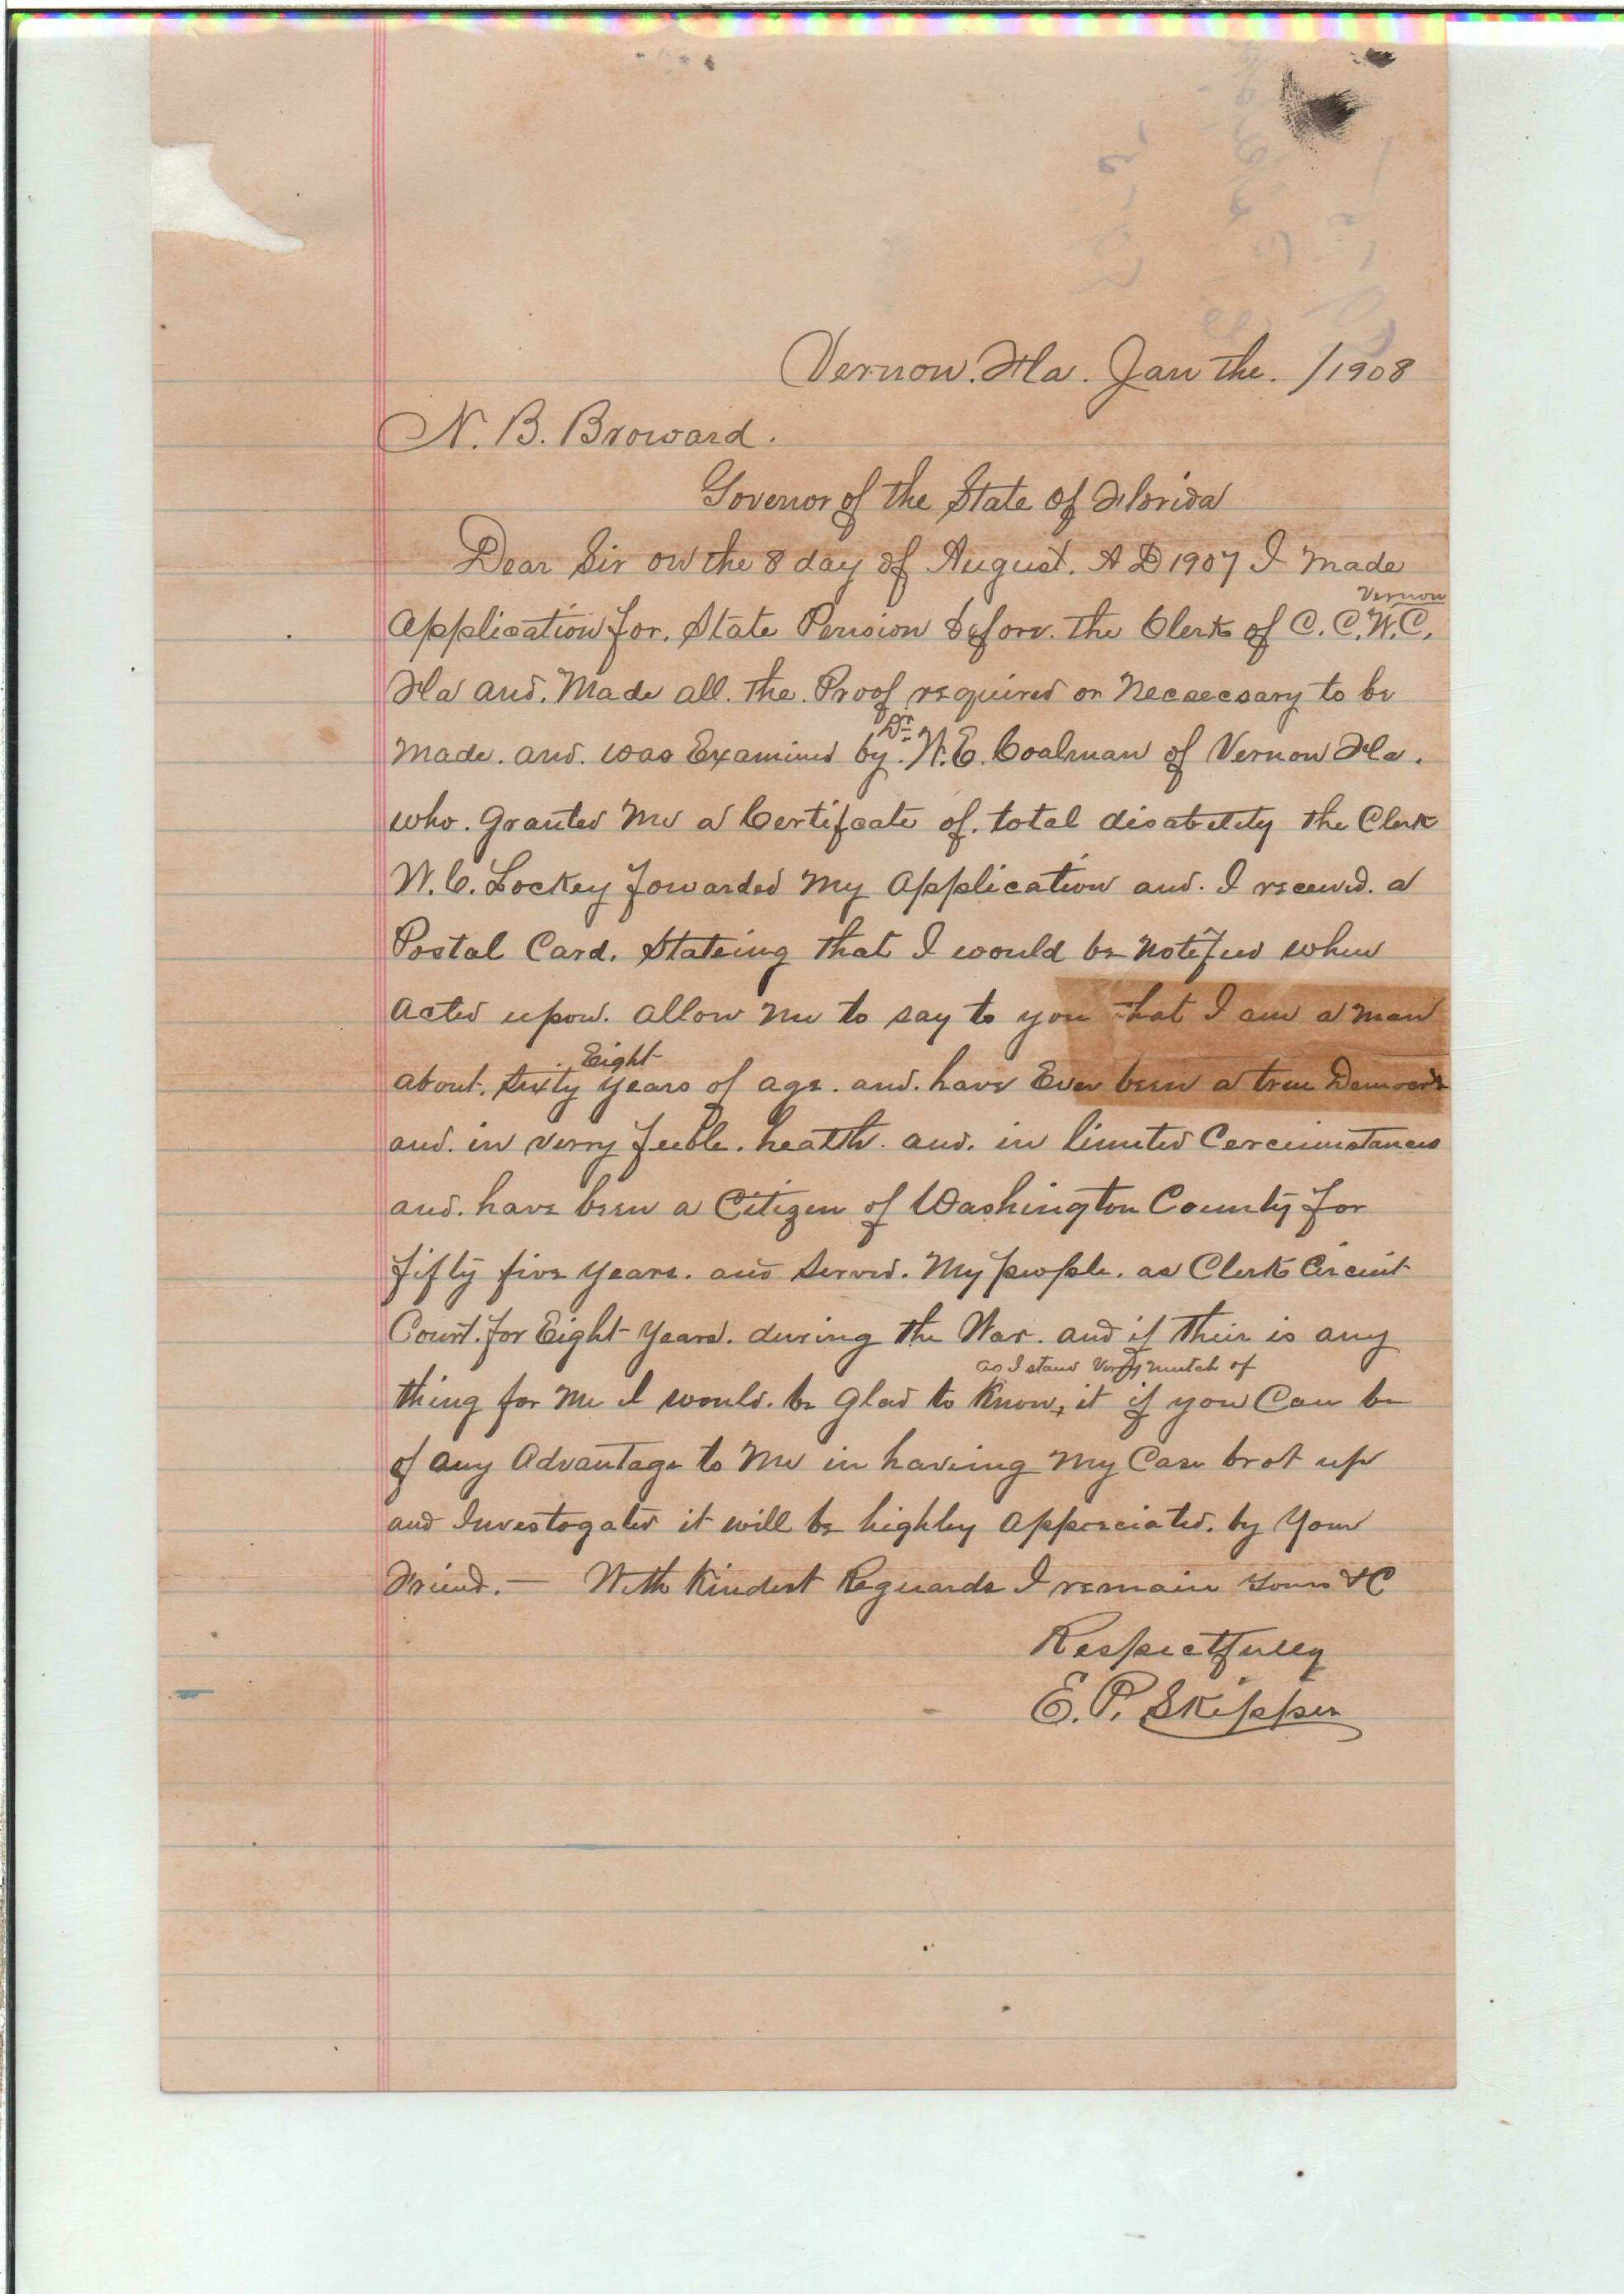 Vernon. Fla. Jan the. /1908
N. B. Broward.
Govenor of the State of Florida
Dear Sir on the 8 day of August. A D 1907 I made
Vernon
Application for. State Pension before. the Clerk of C. C. W. C.
Fla and. Made all. the. Proof required or Necsecsary to be
Dr
made. and. was Examined by. W. E. Coalman of Vernon Fla.
who. granted me a Certifcate of. total disability the Clerk
W. C. Lockey forwarded my application and. I received. a
Postal Card. Stateing that I would be notified when
acted upon. allow me to say to you that I am a man
Eight
about. Sixty years of age. and. have Ever been a true Democrat
and. in verry feeble. health. and. in limited Cercumstances
and. have been a Citizen of Washington County for
fifty five years. and served. my people. as Clerk Circuit
Court. for Eight years. during the War. and if their is any
as I stand verry mutch of
thing for me I would. be glad to know, it if you can be
of any advantage to me in haveing my Case brot up
and Investogated it will be highley appreciated. by your
Friend. — With kindest Reguards I remain yours &C
Respectfully
E. P. Skipper